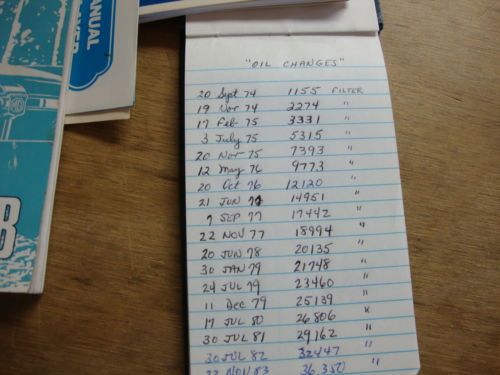 MANUAL
"OIL CHANGES"
20 Sept 74 1155 FILTER
19 Nov 74 2274 "
17 Feb 75 3331 "
3 July 75 5315 "
20 Nov 75 7393 "
12 May 76 9773 "
20 Oct 76 12120 "
21 JUN 77 14951 "
7 SEP 77 17442 "
22 NOV 77 18994 "
20 JUN 78 20135 "
30 JAN 79 21748 "
24 JUL 79 23460 "
11 Dec 79 25139 "
17 JUL 80 26806 "
30 JUL 81 29162 "
30 JUL 82 32447
NOV 83 36,350 "